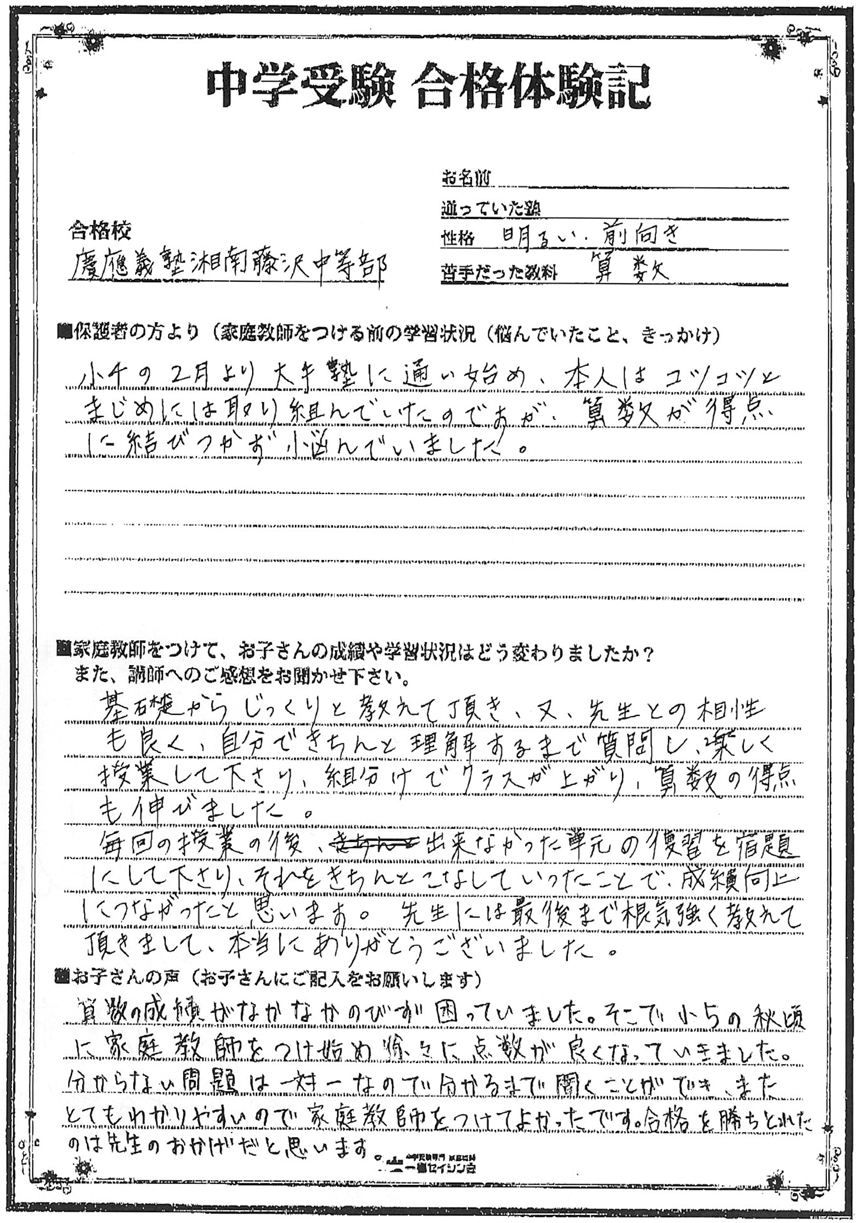 中学受験 合格体験記
お名前
通っていた塾
合格校
性格 明るい・前向き
慶應義塾湘南藤沢中等部
苦手だった教科 算数
■保護者の方より（家庭教師をつける前の学習状況（悩んでいたこと、きっかけ）
小4の2月より大手塾に通い始め、本人はコツコツと
まじめには取り組んでいたのですが、算数が得点
に結びつかず小悩んでいました。
■家庭教師をつけて、お子さんの成績や学習状況はどう変わりましたか？
また、講師へのご感想をお聞かせ下さい。
基礎からじっくりと教えて頂き、又、先生との相性
も良く、自分できちんと理解するまで質問し、楽しく
授業して下さり、組分けでクラスが上がり、算数の得点
も伸びました。
毎回の授業の後、出来なかった単元の復習を宿題
にして下さり、それをきちんとこなしていったことで、成績向上
につながったと思います。 先生には最後まで根気強く教えて
頂きまして、本当にありがとうございました。
■お子さんの声（お子さんにご記入をお願いします）
算数の成績がなかなかのびず困っていました。そこで小5の秋頃
に家庭教師をつけ始め徐々に点数が良くなっていきました。
分からない問題は一対一なので分かるまで聞くことができ、また
とてもわかりやすいので家庭教師をつけてよかったです。合格を勝ちとれた
のは先生のおかげだと思います。
一橋セイシン会